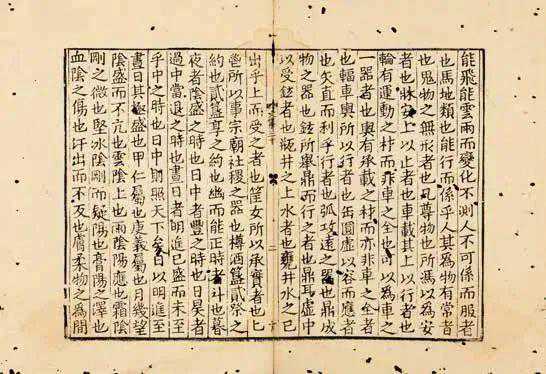 能飛能雲雨而變化不測人不可係而服者
也馬地類也能行而係乎人其為物有常者
也鬼物之無形者也几尊物也所馮以為安
者也牀安上以止者也車載其上以行者也
輪有運動之材而非車之全也可以為車之
一器者也輿有承載之材而亦非車之全者
也輻車輿所以行者也缶圓虛以容而應者
也矢直而利乎行者也弧攻遠之器也鼎成
物之器也鉉所舉鼎而行之者也鼎耳虛中
以受鉉者也瓶井之上水者也甕井水之已
二
出乎上而受之者也筐女所以承實者也匕
鬯所以事宗廟社稷之器也樽酒簋貳祭之
約也貳簋享之約也幽而能正時者斗也暮
夜者陰盛之時也日中者豐之時也日昃者
過中當退之時也晝日者明進已盛而未至
乎中之時也日中則照天下矣日以明進至
晝日其極盛也甲仁屬也庚義屬也月幾望
陰盛而不亢也雲陰上也雨陰陽應也霜陰
剛之微也堅冰陰剛而疑陽也膏陽之澤也
血陰之傷也汗出而不反也膚柔物之為間